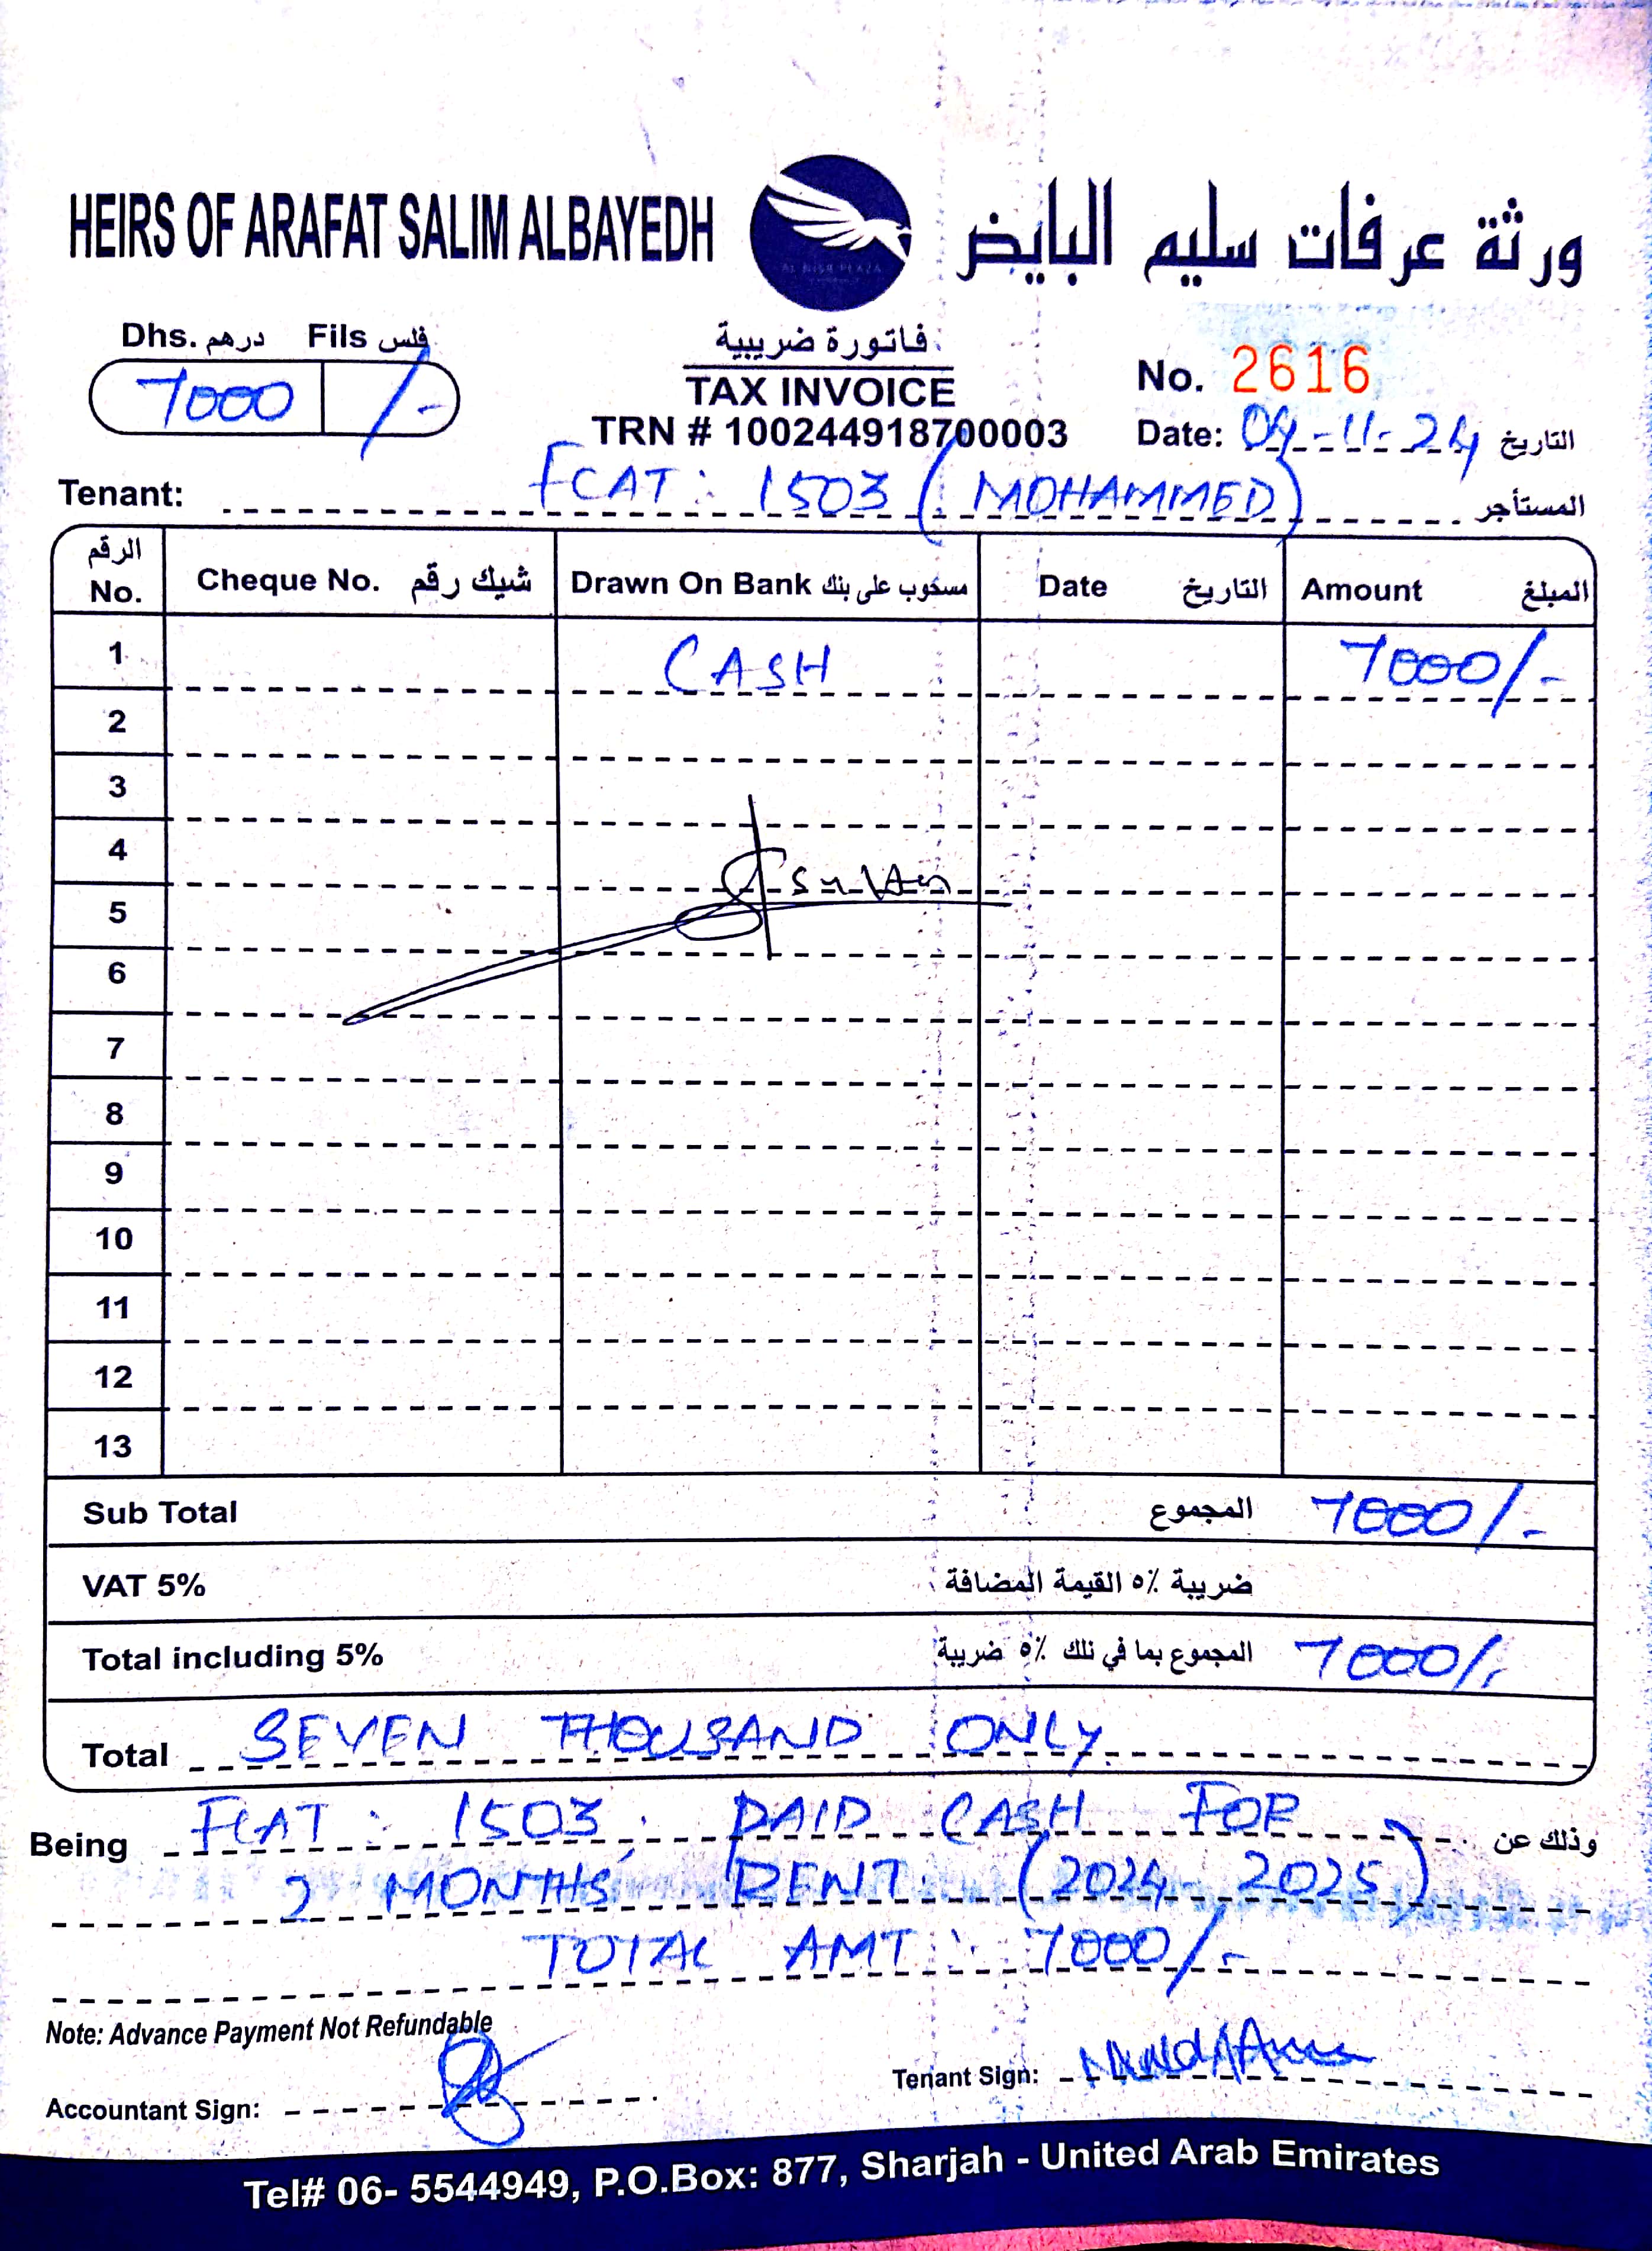 HEIRS OF ARAFAT SALIM ALBAYEDH
AL NISR PLAZA
ورثة عرفات سليم البايض
Dhs. درهم Fils فلس
7000 /-
فاتورة ضريبية
TAX INVOICE
TRN # 100244918700003
No. 2616
Date: 09-11-24 التاريخ
Tenant: FLAT: 1503 (MOHAMMED) المستأجر
الرقم No. Cheque No. شيك رقم Drawn On Bank مسحوب على بنك Date التاريخ Amount المبلغ
1 CASH 7000/-
2
3
4
5
6
7
8
9
10
11
12
13
Sub Total المجموع 7000/-
VAT 5% ضريبة ٥٪ القيمة المضافة
Total including 5% المجموع بما في ذلك ٥٪ ضريبة 7000/-
Total SEVEN THOUSAND ONLY.
Being FLAT: 1503, PAID CASH FOR وذلك عن
2 MONTHS RENT. (2024-2025)
TOTAL AMT: 7000/-
Note: Advance Payment Not Refundable
Accountant Sign:
Tenant Sign:
Tel# 06- 5544949, P.O.Box: 877, Sharjah - United Arab Emirates